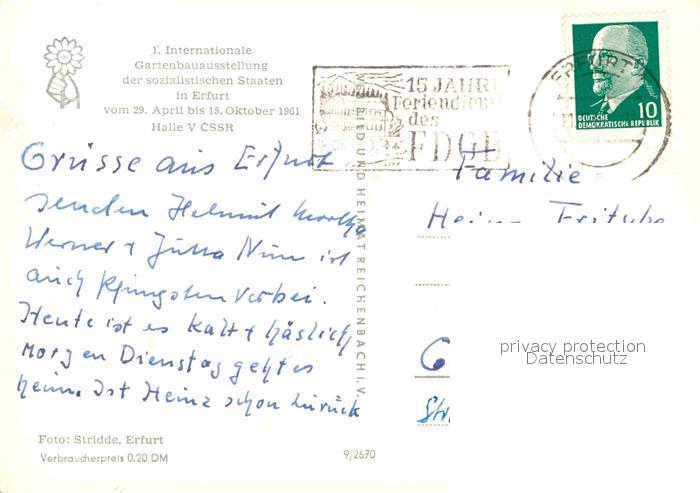 1. Internationale
Gartenbauausstellung
der sozialistischen Staaten
in Erfurt
vom 29. April bis 15. Oktober 1961
Halle V ČSSR
15 JAHRE
Feriendienst
des
FDGB
ERFURT
10
DEUTSCHE
DEMOKRATISCHE REPUBLIK
Grüsse aus Erfurt
senden Helmut Martha
Werner + Jutta Nun ist
auch Pfingsten vorbei.
Heute ist es kalt + häslich
Morgen Dienstag geht es
heim. Ist Heinz schon zurück
BILD UND HEIMAT REICHENBACH I. V.
Familie
Fritsche
G
Str
privacy protection
Datenschutz
Foto: Stridde, Erfurt
Verbraucherpreis 0.20 DM
9/2670